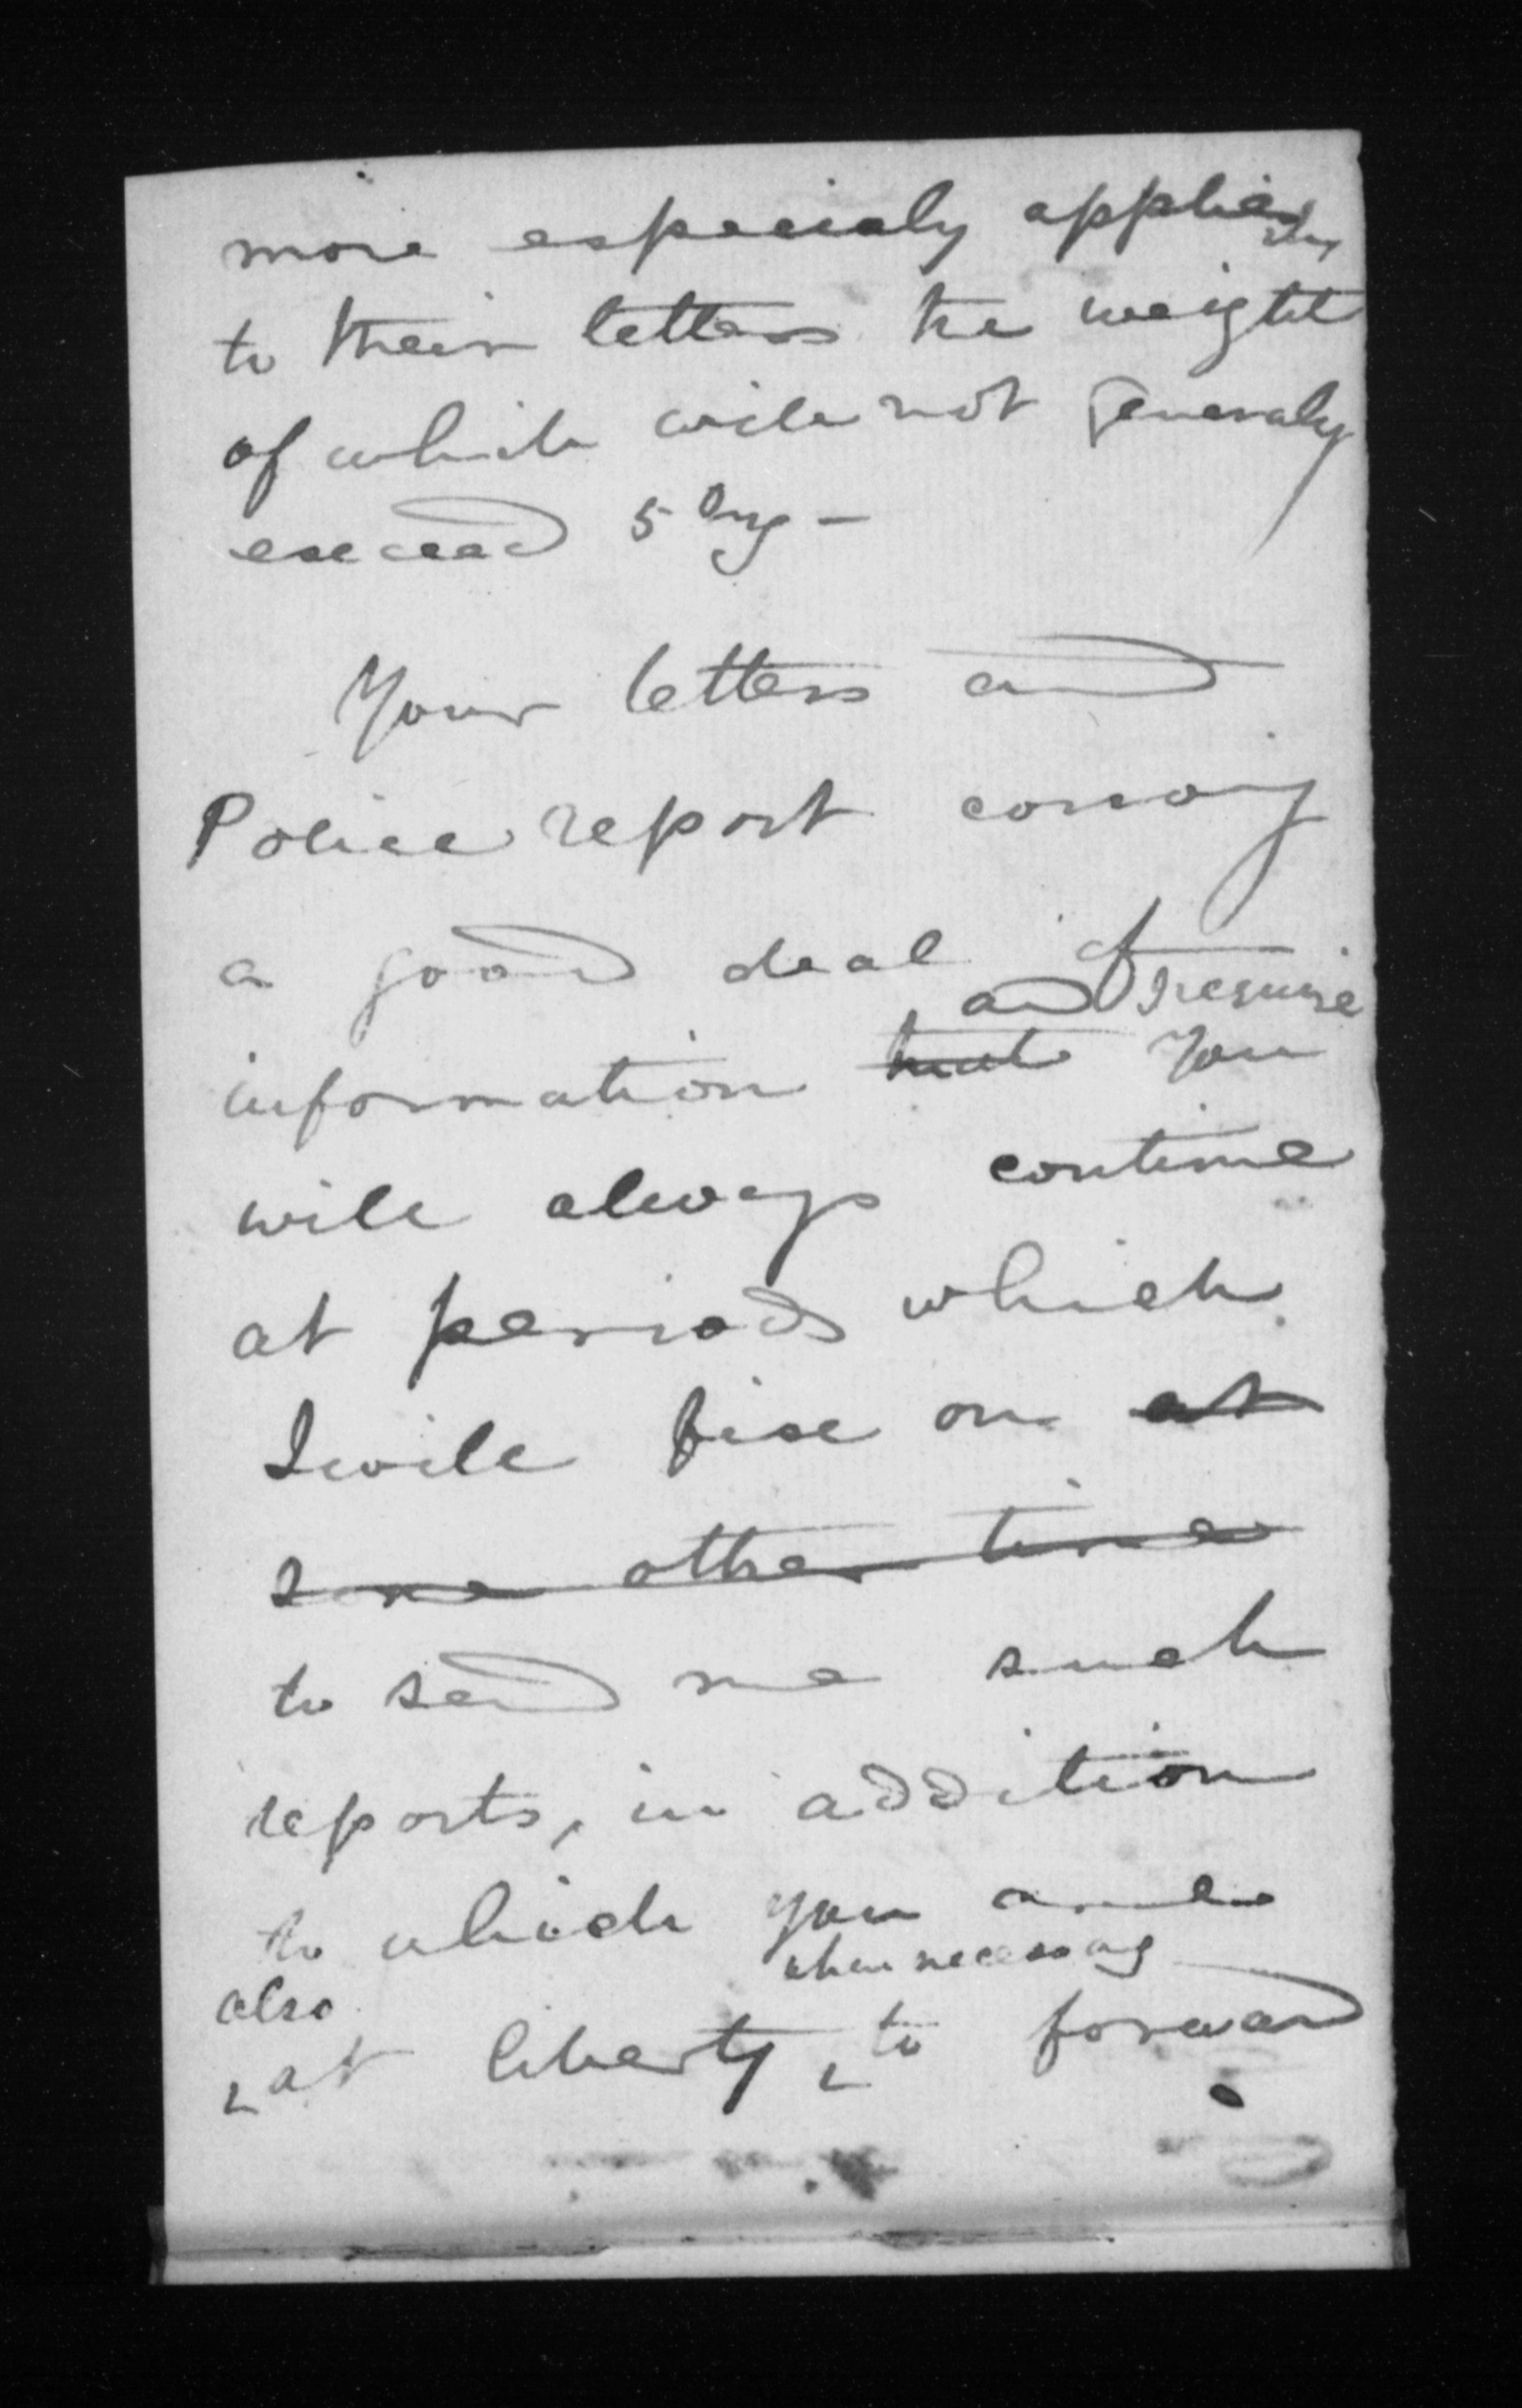 more especialy applies
to their letters the weight
of which will not generaly
exceed 5
Your letters and
Police report convey
a good deal of
and I require
information that you
will always continue
at periods which
I will fix on at
some other time
to send me such
reports, in addition
to which you are
when necessary
also
at liberty to forward